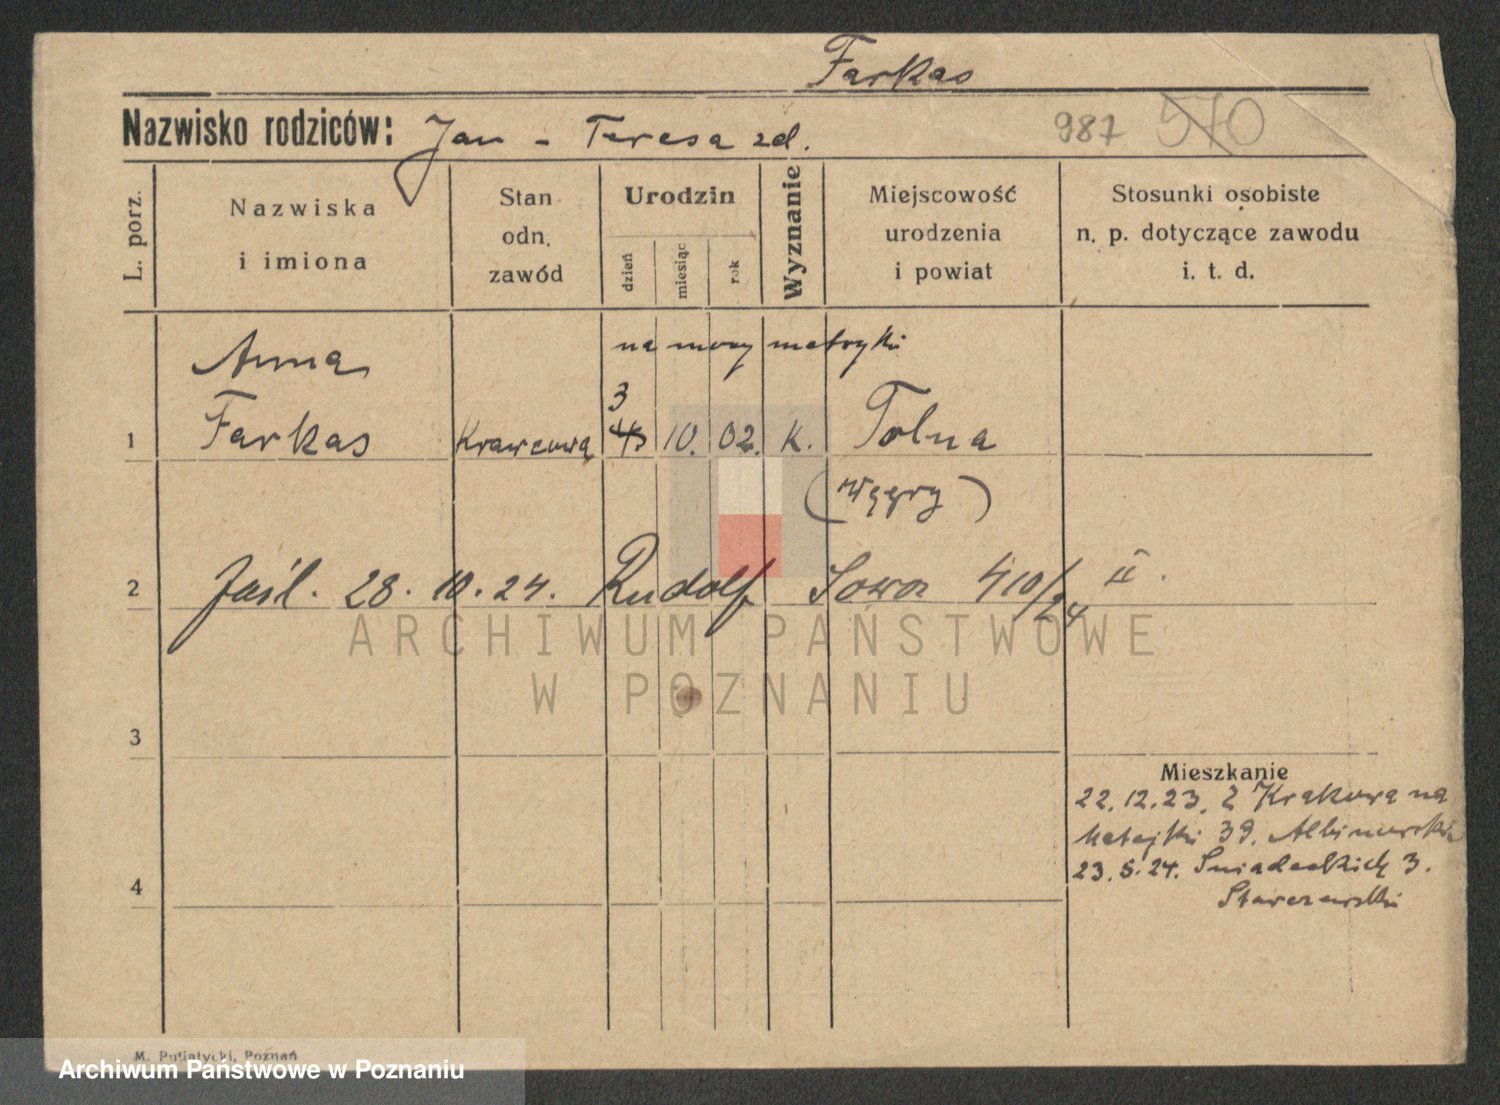 Farkas
Nazwisko rodziców: Jan - Teresa zd.
987 570
L. porz.
Nazwiska
i imiona
Stan
odn.
zawód
Urodzin
dzień
miesiąc
rok
Wyznanie
Miejscowość
urodzenia
i powiat
Stosunki osobiste
n. p. dotyczące zawodu
i. t. d.
na mocy metryki
Anna
3
1 Farkas Krawcowa 4 10. 02. K. Tolna
(Węgry)
2 Jaśl. 28. 10. 24. Rudolf Sowa 410/24 II.
ARCHIWUM PAŃSTWOWE
W POZNANIU
3
Mieszkanie
22.12.23. Z Krakowa na
Matejki 39.
23.5.24. Śniadeckich 3.
4
Starczewski
M. Putiatycki, Poznań
Archiwum Państwowe w Poznaniu